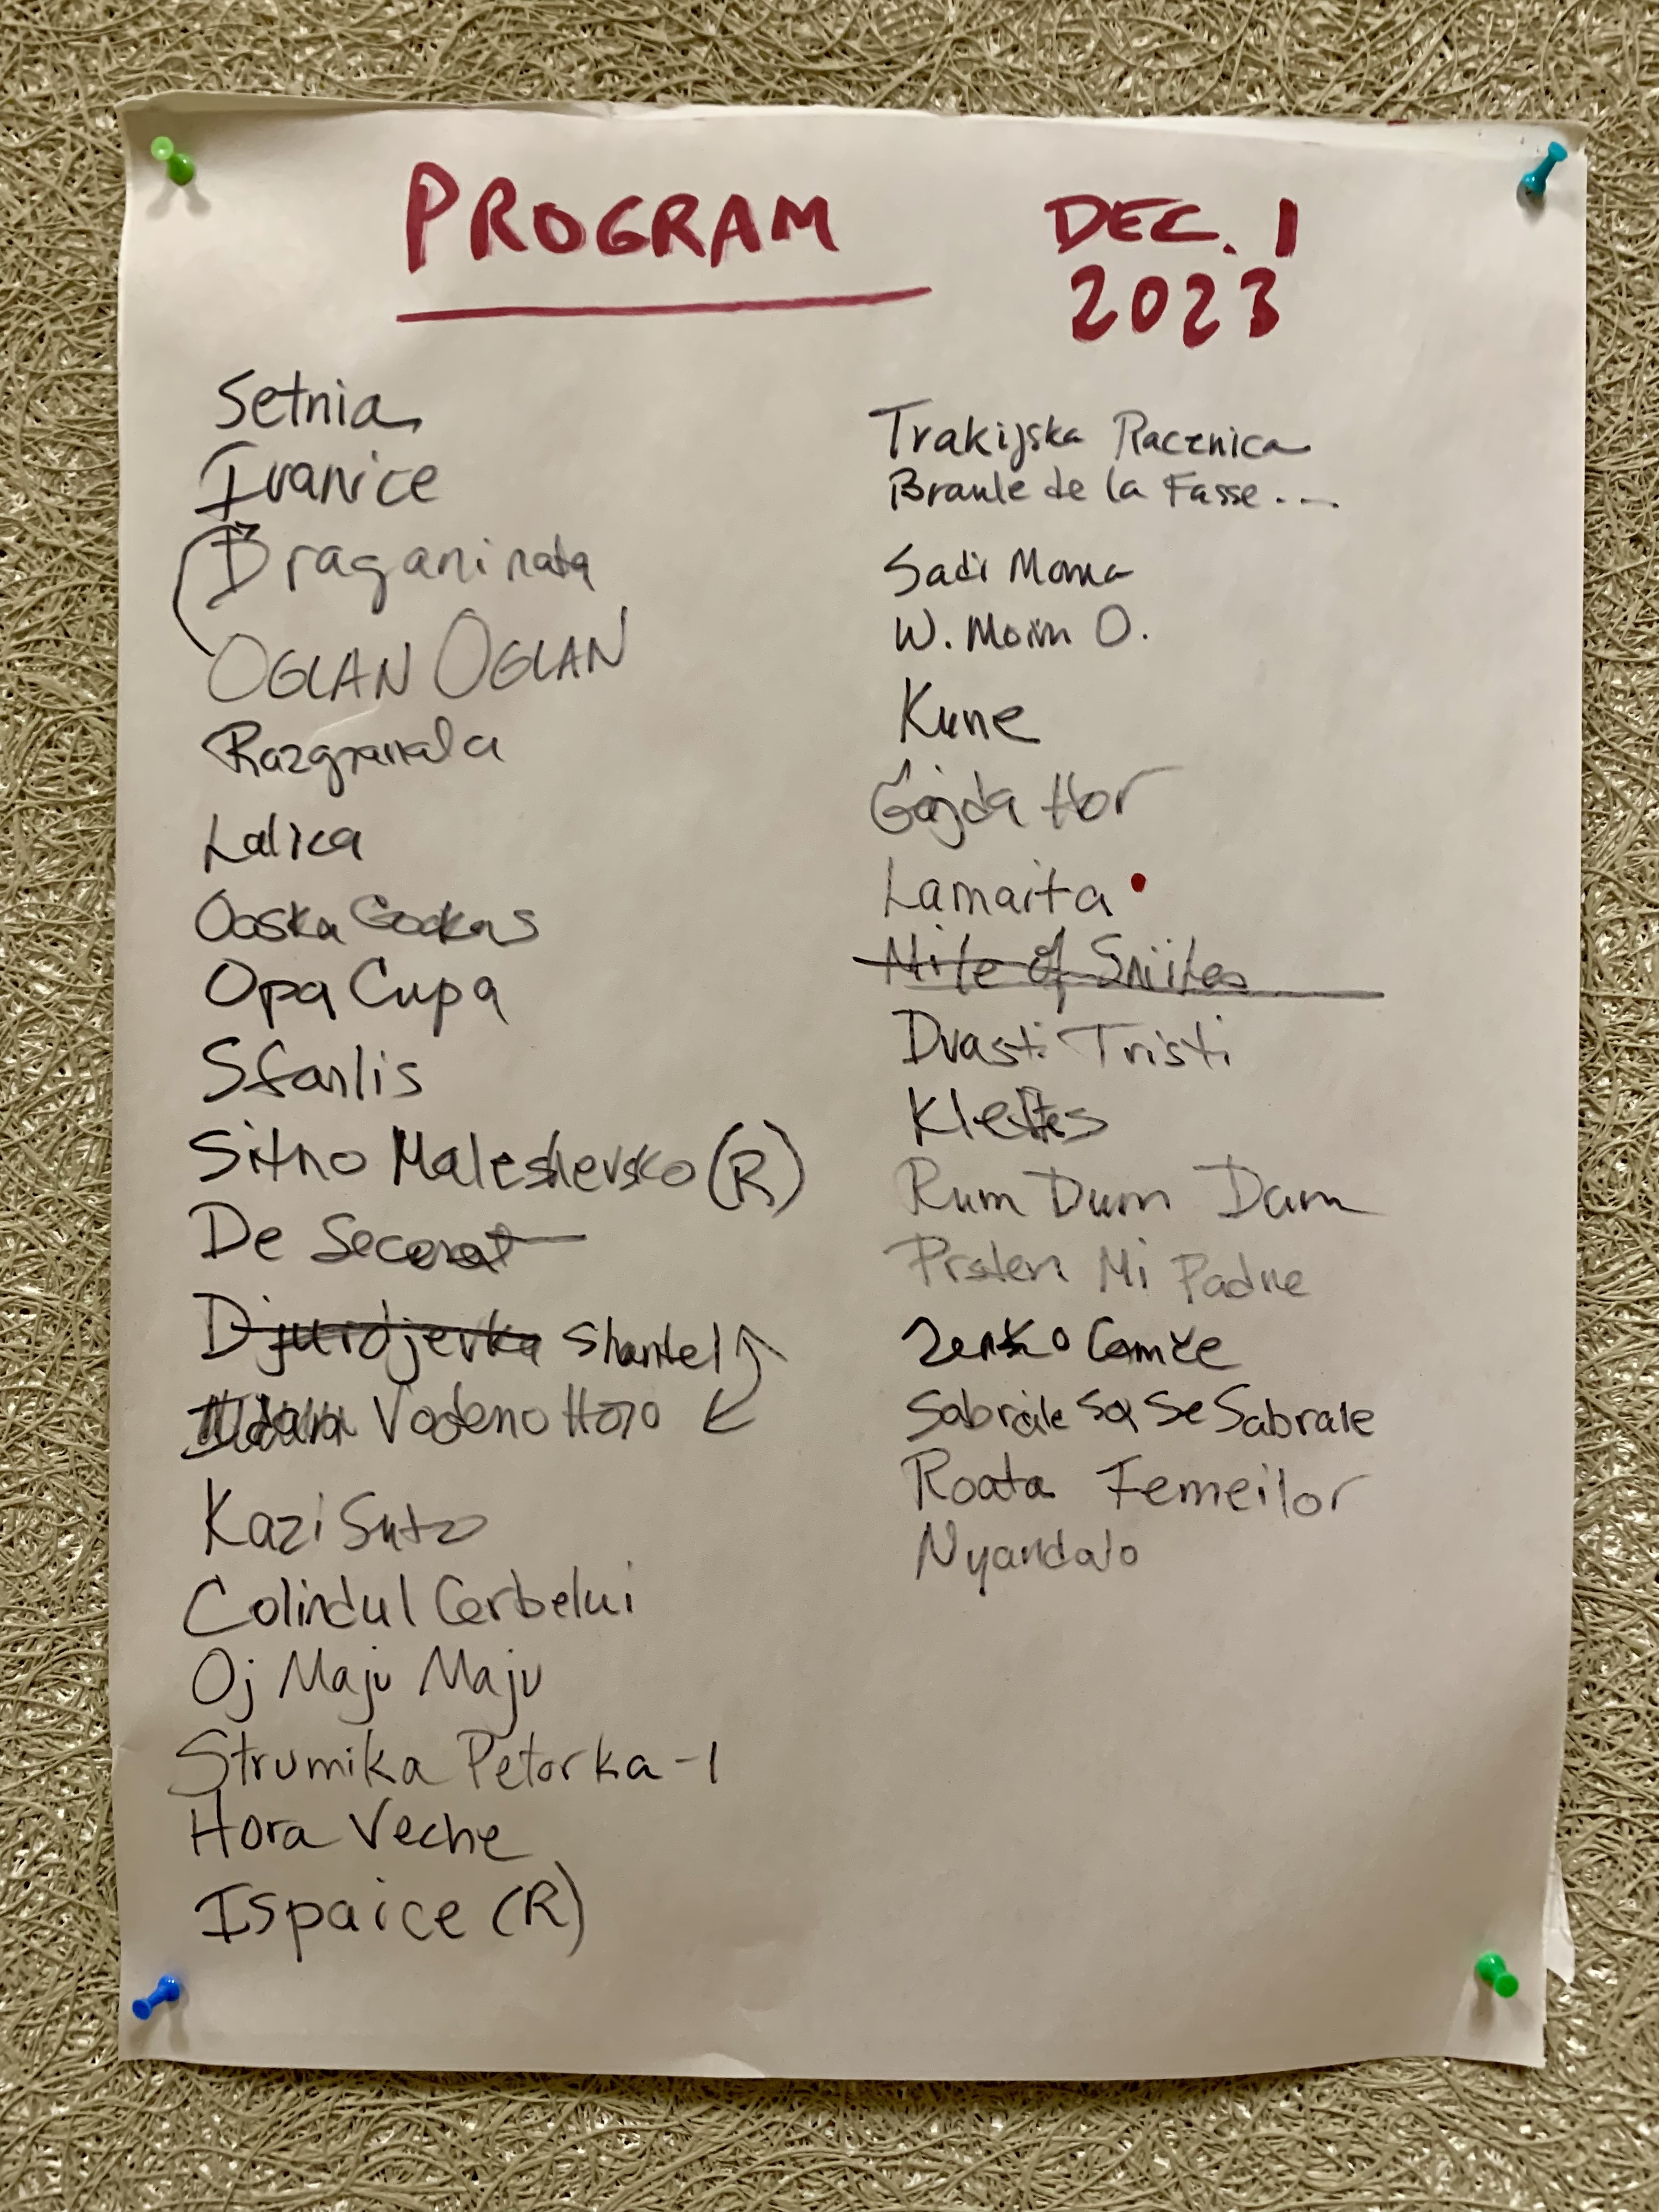 PROGRAM
DEC. 1
2023
Setnia
Ivanice
Draganinata
OGLAN OGLAN
Razgranala
Lalica
Ooska
Opa Cupa
Sfarlis
Sitno Maleshevsko (R)
De Secerat
Djurdjevka Shantel
Vodeno Horo
Kazi Suto
Colindul Cerbelui
Oj Maju Maju
Strumika Petorka -1
Hora Veche
Ispaice (R)
Trakijska Racznica
Branle de la Fasse...
Sadi Moma
W. Moim O.
Kune
Gajda Hor
Lamaita
Nite of Sniites
Dvasti Tristi
Kleftes
Rum Dum Dam
Prsten Mi Padne
Zensko Camče
Sabrale Sa Se Sabrale
Roata Femeilor
Nyandalo